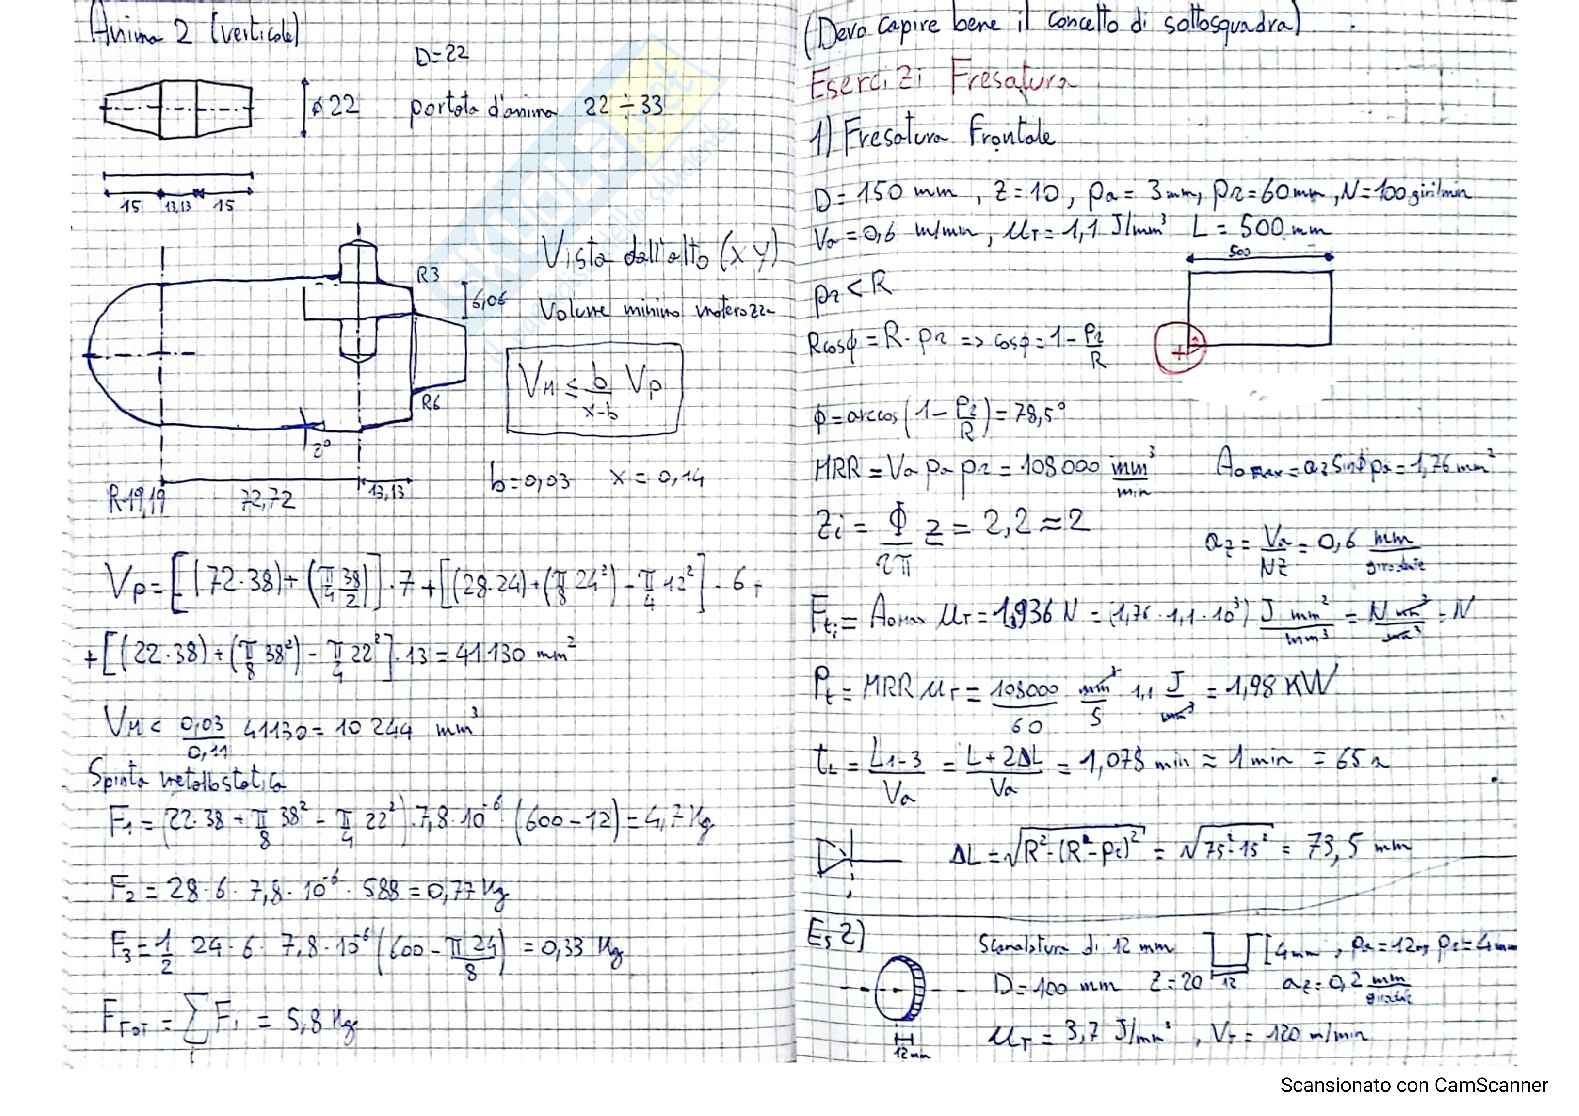 Anima 2 (verticale)
D=22
⌀22
portata d'anima 22 ÷ 33
15 13,13 15
Vista dall'alto (XY)
R3
6,06
Volume minimo materozza
V_M ≤ b/(x-b) V_P
R6
2°
b=0,03 x=0,14
R 19,19 72,72 13,13
V_P = [(72·38)+(π/4 38/2)]·7+[(28·24)+(π/8 24²)-π/4 12²]·6+
+[(22·38)+(π/8 38²)-π/4 22²]·13=41130 mm²
V_M < 0,03/0,11 41130= 10244 mm³
Spinta metallostatica
F₁ = (22·38+π/8 38²-π/4 22²)·7,8·10⁻⁶(600-12)=4,7 Kg
F₂ = 28·6·7,8·10⁻⁶·588=0,77 Kg
F₃=1/2 24·6·7,8·10⁻⁶(600-π24/8)=0,33 Kg
F_TOT = ∑Fᵢ = 5,8 Kg
(Devo capire bene il concetto di sottosquadra)
Esercizi Fresatura
1) Fresatura Frontale
D=150 mm, Z=10, pa=3mm, pr=60mm, N=100 giri/min
Va=0,6 m/min, μ_T=1,1 J/mm³ L=500 mm
500
pr<R
Rcosϕ=R-pr => cosϕ=1-pr/R
ϕ=arccos(1-pr/R)=78,5°
MRR=Va pa pr=108000 mm³/min
A₀max=az sinϕ pa=1,76 mm²
Zi=Φ/2π z=2,2≈2
az=Va/NZ=0,6 mm/giro·dente
F_ti=A₀max μ_T=1,936 N=(1,76·1,1·10³) J mm²/mm³=N mm³/mm³=N
P_t=MRR μ_T=108000/60 mm³/s 1,1 J/mm³=1,98 KW
t_L=L₁₋₃/Va=L+2ΔL/Va=1,078 min≈1min=65 s
ΔL=√R²-(R-pr)²=√75²-15²=73,5 mm
Es 2)
Scanalatura di 12 mm 4mm, pa=12mm, pr=4mm
12
D=100 mm Z=20 az=0,2 mm/giro·dente
12mm
μ_T=3,7 J/mm³, V_T=120 m/min
Scansionato con CamScanner